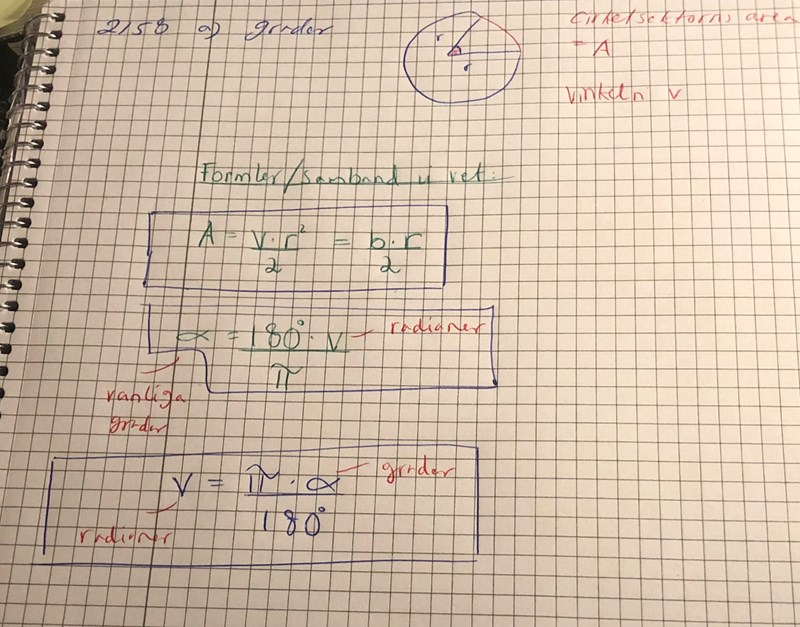 2158 a) grader
r
r
Cirkelsektorns area
= A
Vinkeln v
Formler/samband u vet:
A = v·r²/2 = b·r/2
α = 180°·v/π
radianer
vanliga
grader
v = π·α/180°
grader
radianer